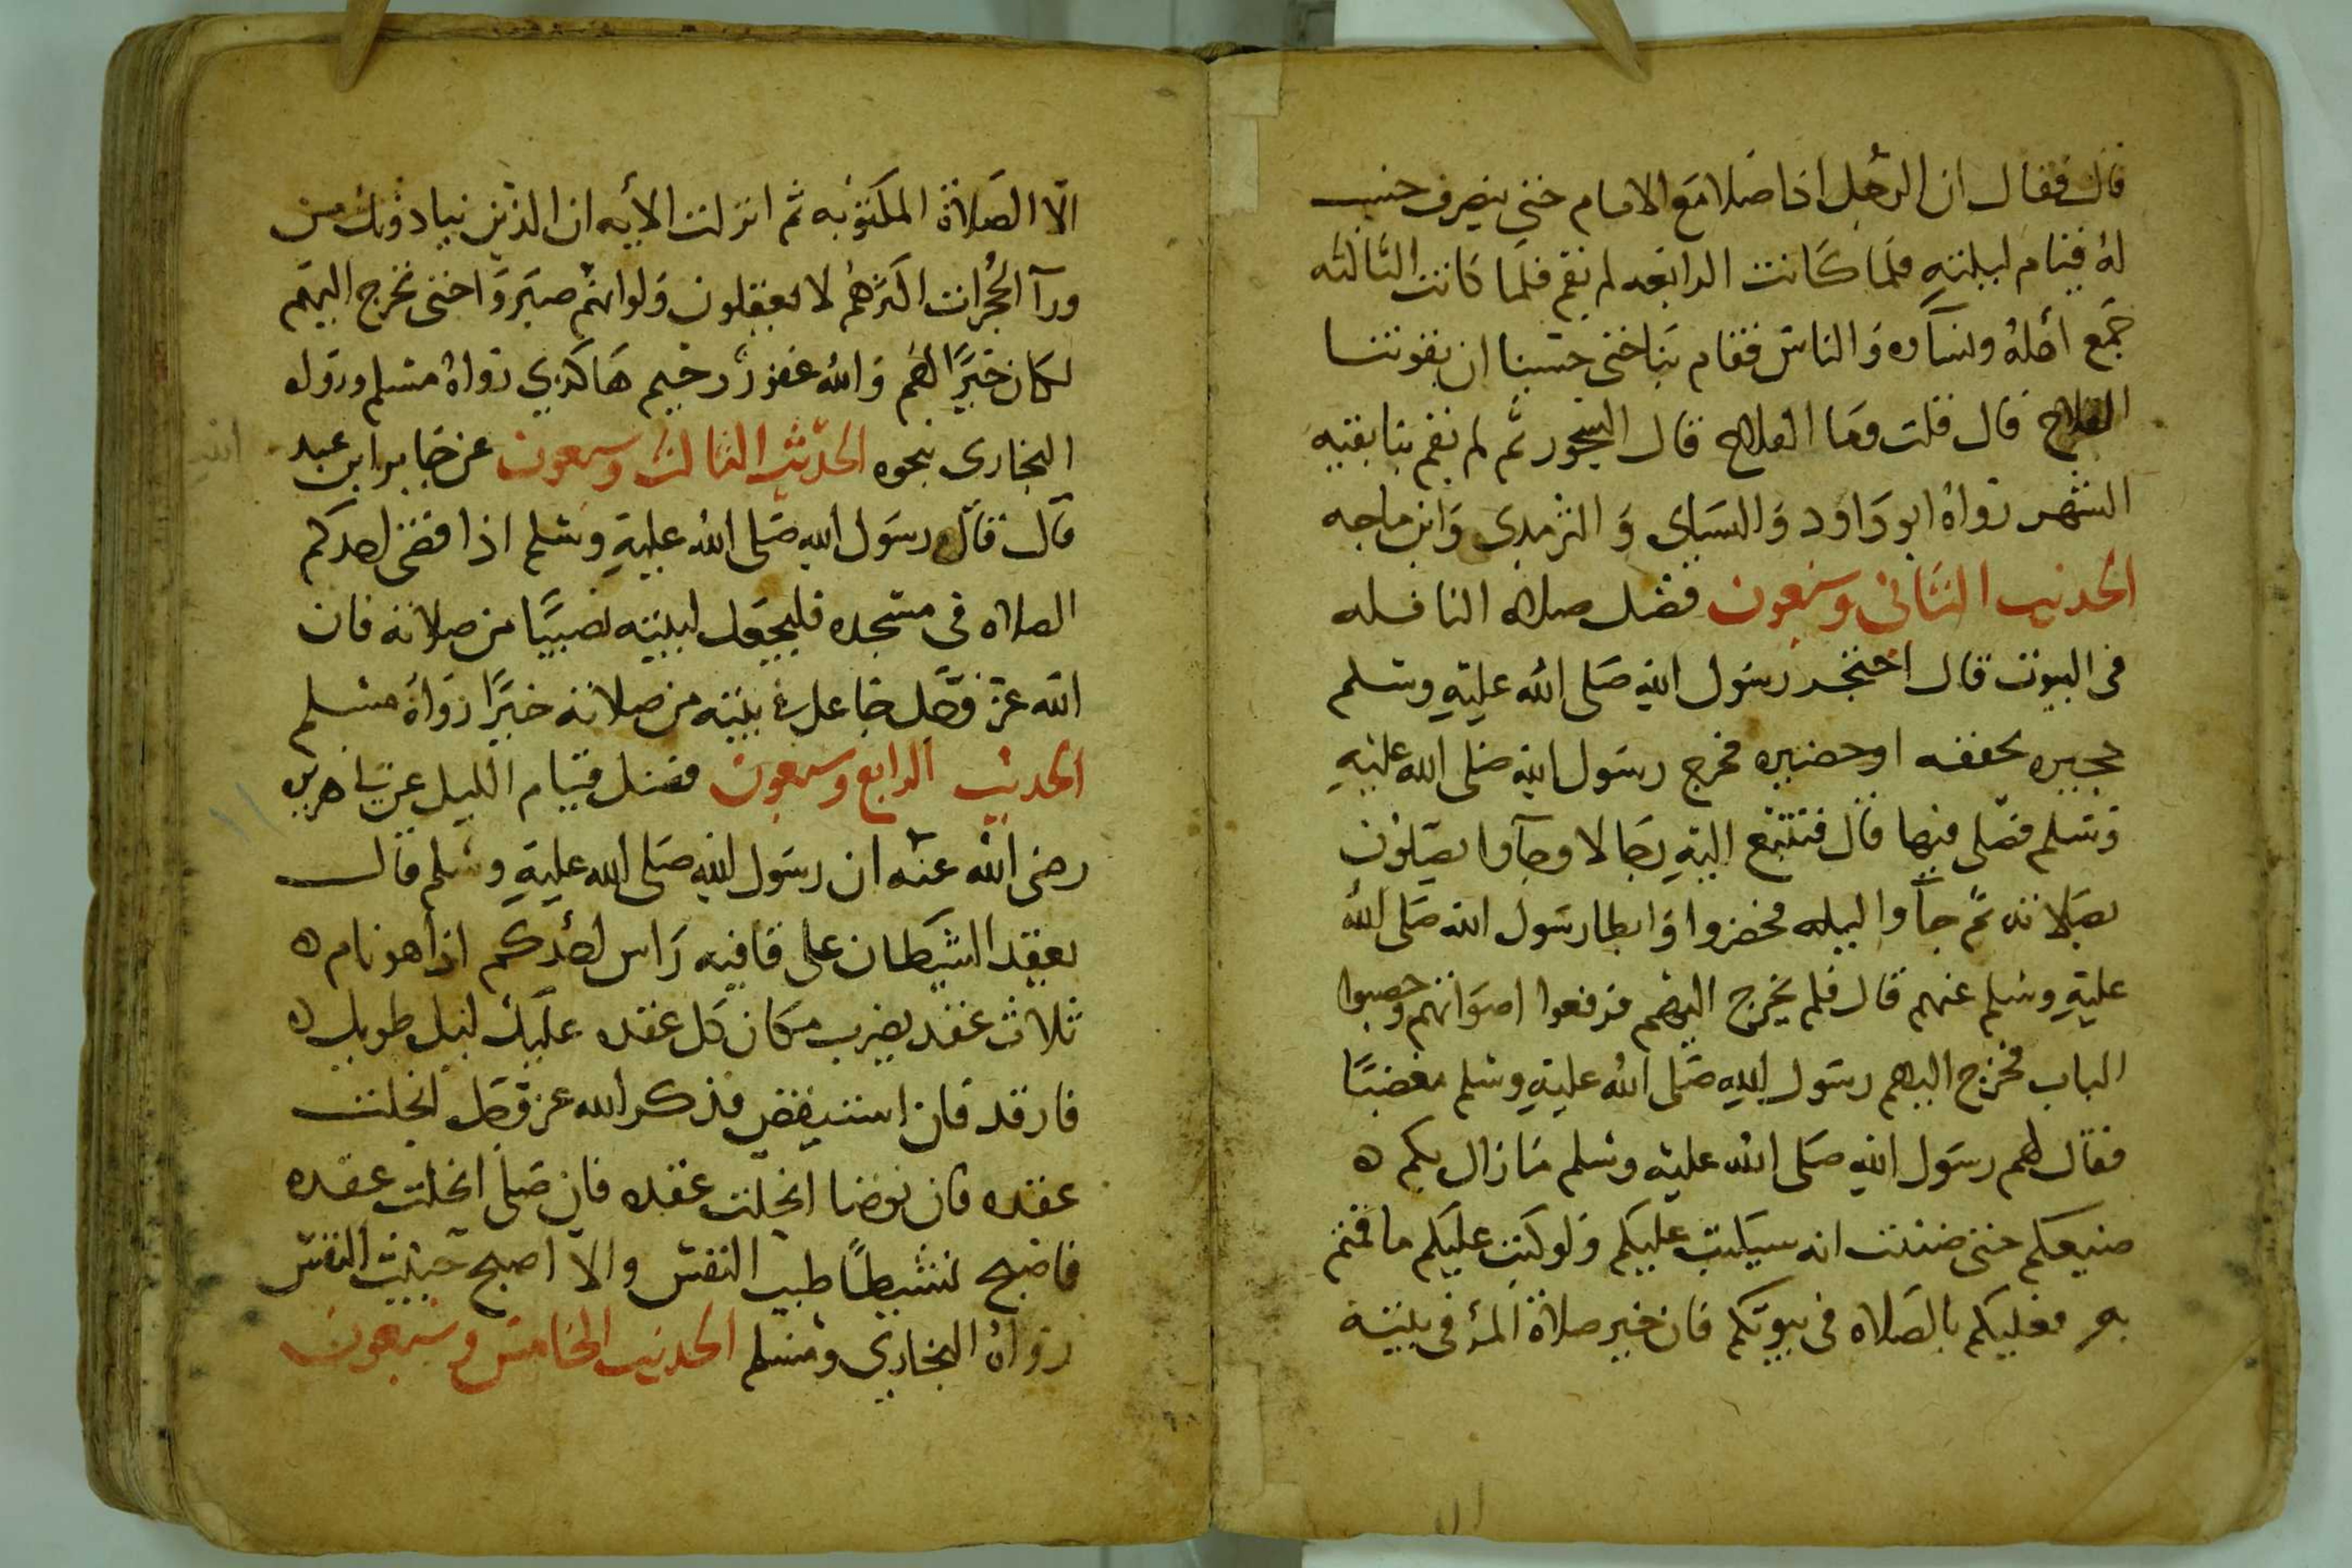 قال فقال ان الرجل اذا صلا مع الامام حتى ينصرف حسب
له قيام ليلته فلما كانت الرابعه لم نقم فلما كانت الثالثه
جمع اهله ونسآه والناس فقام بنا حتى حسبنا ان يفوتنا
الفلاح قال قلت وما الفلاح قال السحور ثم لم نقم بنا بقيه
الشهر رواه ابو داود والنساي والترمدي وابن ماجه
الحديث الثاني وسبعون فضل صلاه النافله
في البيوت قال احتجر رسول الله صلى الله عليه وسلم
حجيره بخففه او حصيره فخرج رسول الله صلى الله عليه
وسلم فصلى فيها قال فتتبع اليه رجالا وجآوا يصلون
بصلاته ثم جآوا ليله فحضروا وابطا رسول الله صلى الله
عليه وسلم عنهم قال فلم يخرج اليهم فرفعوا اصواتهم وحصبوا
الباب فخرج اليهم رسول الله صلى الله عليه وسلم مغضبا
فقال لهم رسول الله صلى الله عليه وسلم ما زال بكم ه
صنيعكم حتى ضننت انه سيكتب عليكم ولو كتب عليكم ما قمتم
به فعليكم بالصلاه في بيوتكم فان خير صلاة المرؤ في بيته
الا الصلاة المكتوبه ثم انزلت الأيه ان الذين ينادونك من
ورآ الحجرات اكثرهم لا يعقلون ولو انهم صبروا حتى تخرج اليهم
لكان خيرا لهم والله غفور رحيم هاكذي رواه مسلم وروا له
البخاري نحوه الحديث الثالث وسبعون عن جابر ابن عبد الله
قال قال رسول الله صلى الله عليه وسلم اذا قضى احدكم
الصلاه في مسجده فليجعل لبيته نصيبا من صلاته فان
الله عز وجل جاعل في بيته من صلاته خيرا رواه مسلم
الحديث الرابع وسبعون فضل قيام الليل عن ابي هريره
رضى الله عنه ان رسول الله صلى الله عليه وسلم قال
يعقد الشيطان على قافيه راس احدكم اذا هو نام ه
ثلاث عقد يضرب مكان كل عقده عليك ليل طويل ه
فارقد فان استيقض فذكر الله عز وجل انحلت
عقده فان توضا انحلت عقده فان صلى انحلت عقده
فاصبح نشيطا طيب النفس والا اصبح خبيث النفس
رواه البخاري ومسلم الحديث الخامس وسبعون